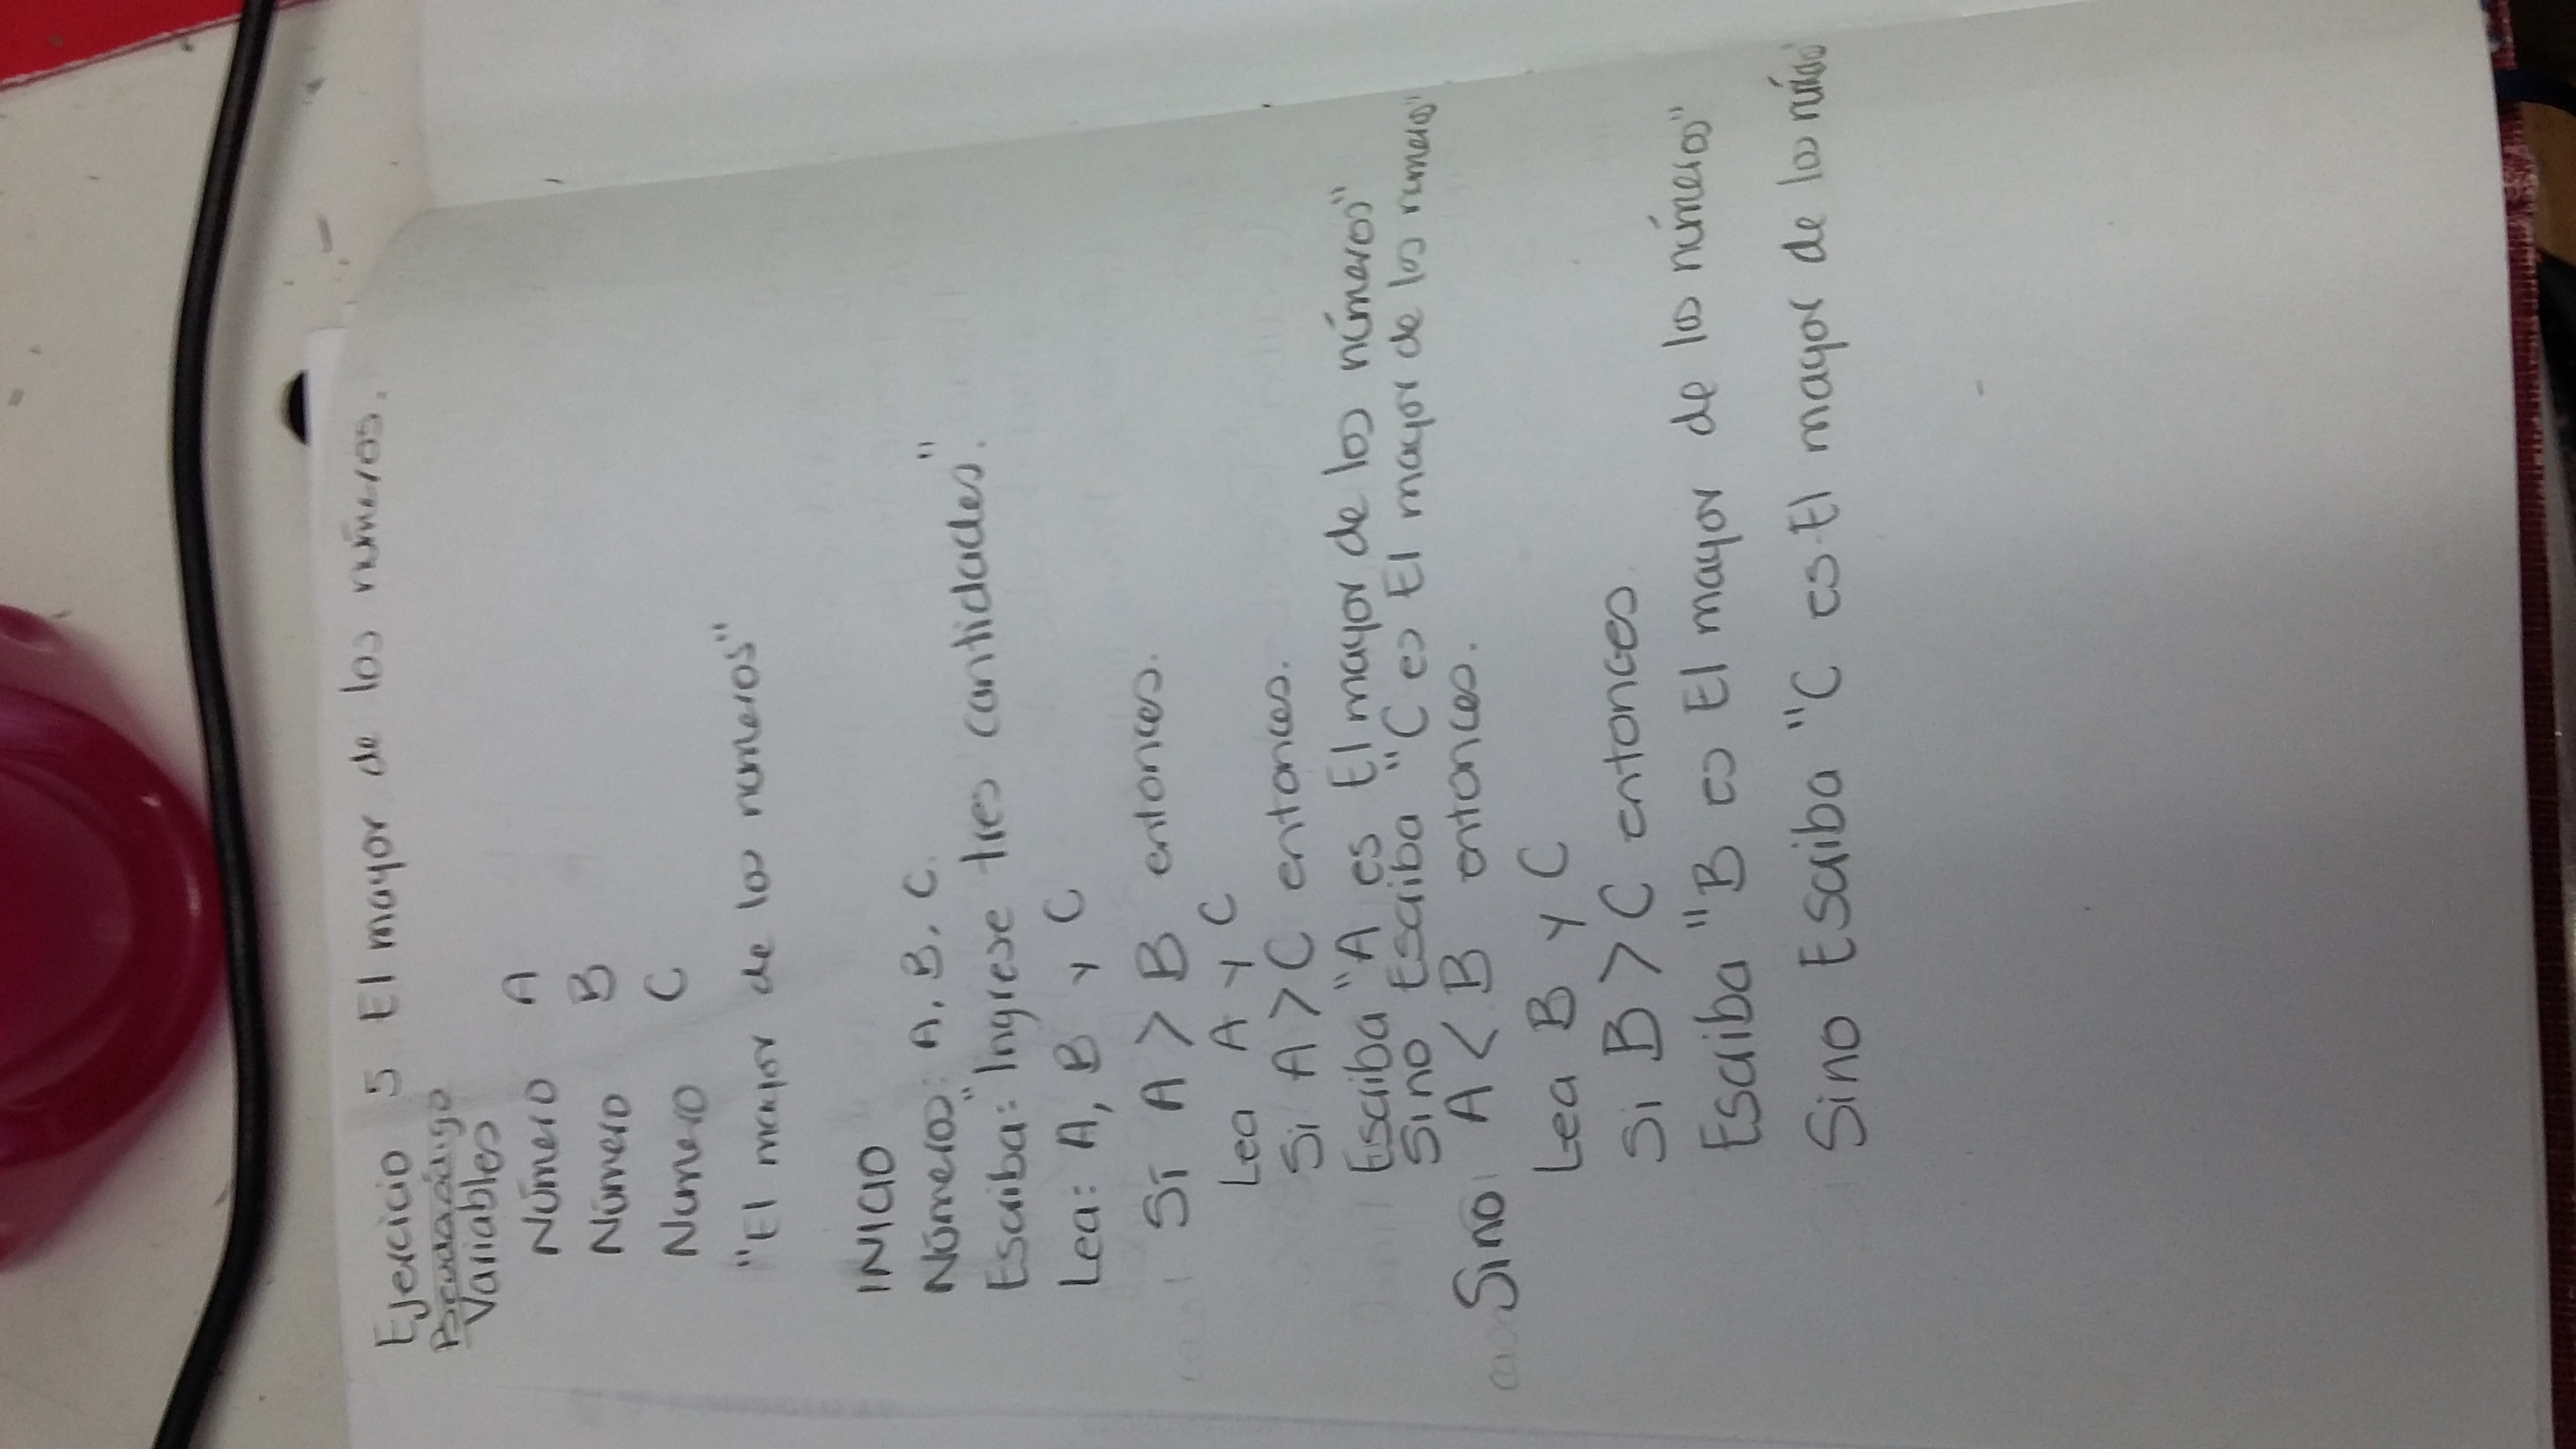 Ejercicio 5 El mayor de los números.
Pseudocódigo
Variables
Número A
Número B
Numero C
"El mayor de los numeros"
INICIO
Números: A, B, C.
Escriba: "Ingrese tres cantidades".
Lea: A, B y C
Sí A > B entonces.
Lea A y C
Si A > C entonces.
Escriba "A es El mayor de los números"
Sino Escriba "C es El mayor de los numeros"
Sino A < B entonces.
Lea B y C
Si B > C entonces
Escriba "B es El mayor de los números"
Sino Escriba "C es El mayor de los